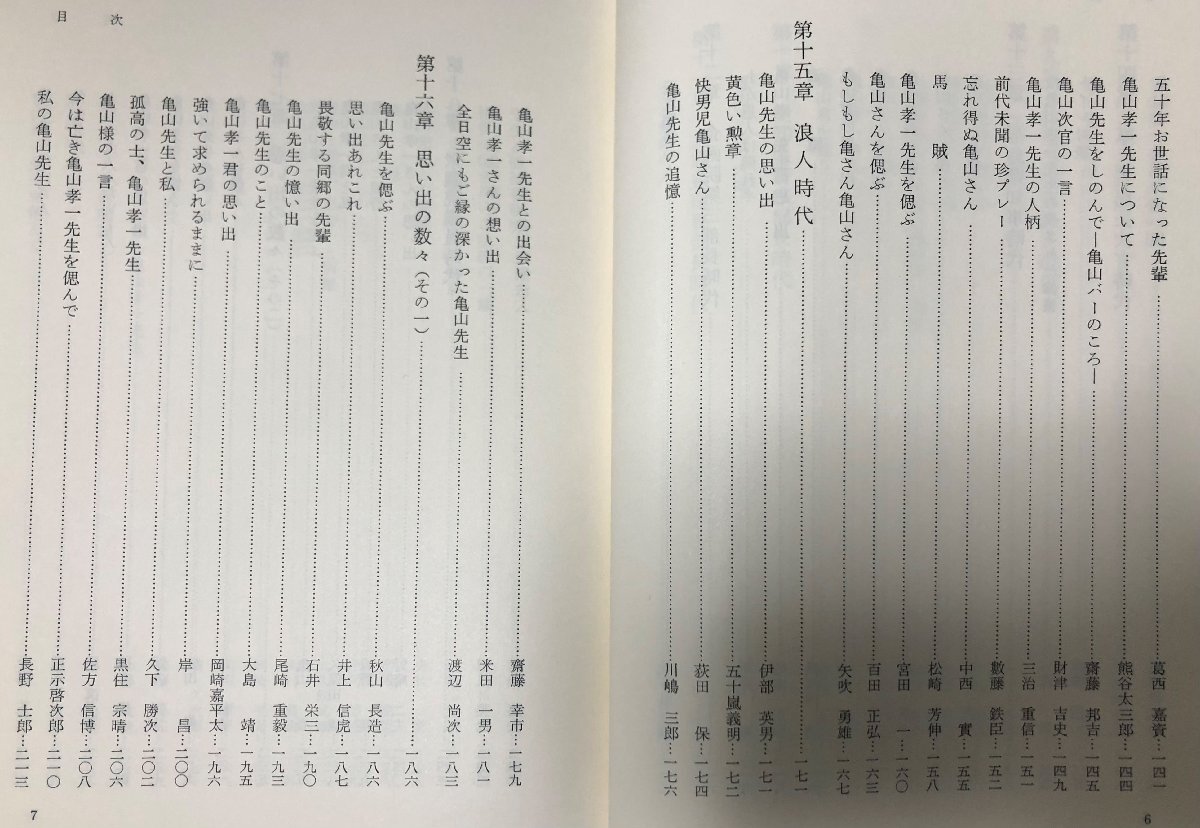 五十年お世話になった先輩……葛西 嘉資…一四一
亀山孝一先生について……熊谷太三郎…一四四
亀山先生をしのんで―亀山バーのころ―……齋藤 邦吉…一四五
亀山次官の一言……財津 吉史…一四九
亀山孝一先生の人柄……三治 重信…一五一
前代未聞の珍プレー……數藤 鉄臣…一五二
忘れ得ぬ亀山さん……中西 實…一五五
馬賊……松崎 芳伸…一五八
亀山孝一先生を偲ぶ……宮田 一…一六〇
亀山さんを偲ぶ……百田 正弘…一六三
もしもし亀さん亀山さん……矢吹 勇雄…一六七
第十五章 浪人時代……一七一
亀山先生の思い出……伊部 英男…一七一
黄色い勲章……五十嵐義明…一七二
快男児亀山さん……荻田 保…一七四
亀山先生の追憶……川嶋 三郎…一七六
6
目次
亀山孝一先生との出会い……齋藤 幸市…一七九
亀山孝一さんの想い出……米田 一男…一八一
全日空にもご縁の深かった亀山先生……渡辺 尚次…一八三
第十六章 思い出の数々(その一)……一八六
亀山先生を偲ぶ……秋山 長造…一八六
思い出あれこれ……井上 信虎…一八七
畏敬する同郷の先輩……石井 栄三…一九〇
亀山先生の憶い出……尾崎 重毅…一九三
亀山先生のこと……大島 靖…一九五
亀山孝一君の思い出……岡崎嘉平太…一九六
強いて求められるままに……岸 昌…二〇〇
亀山先生と私……久下 勝次…二〇二
孤高の士、亀山孝一先生……黒住 宗晴…二〇六
亀山様の一言……佐方 信博…二〇八
今は亡き亀山孝一先生を偲んで……正示啓次郎…二一〇
私の亀山先生……長野 士郎…二一三
7